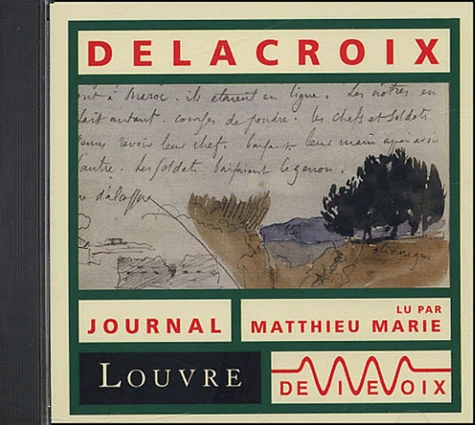 DELACROIX
à Maroc. ils étaient en ligne. Les nôtres en
fait autant. coups de poudre. les chefs et soldats
revoir leur chef. baisant leur main
autre. les soldats baisaient le genou.
JOURNAL
LU PAR
MATTHIEU MARIE
LOUVRE
DE VIVE VOIX